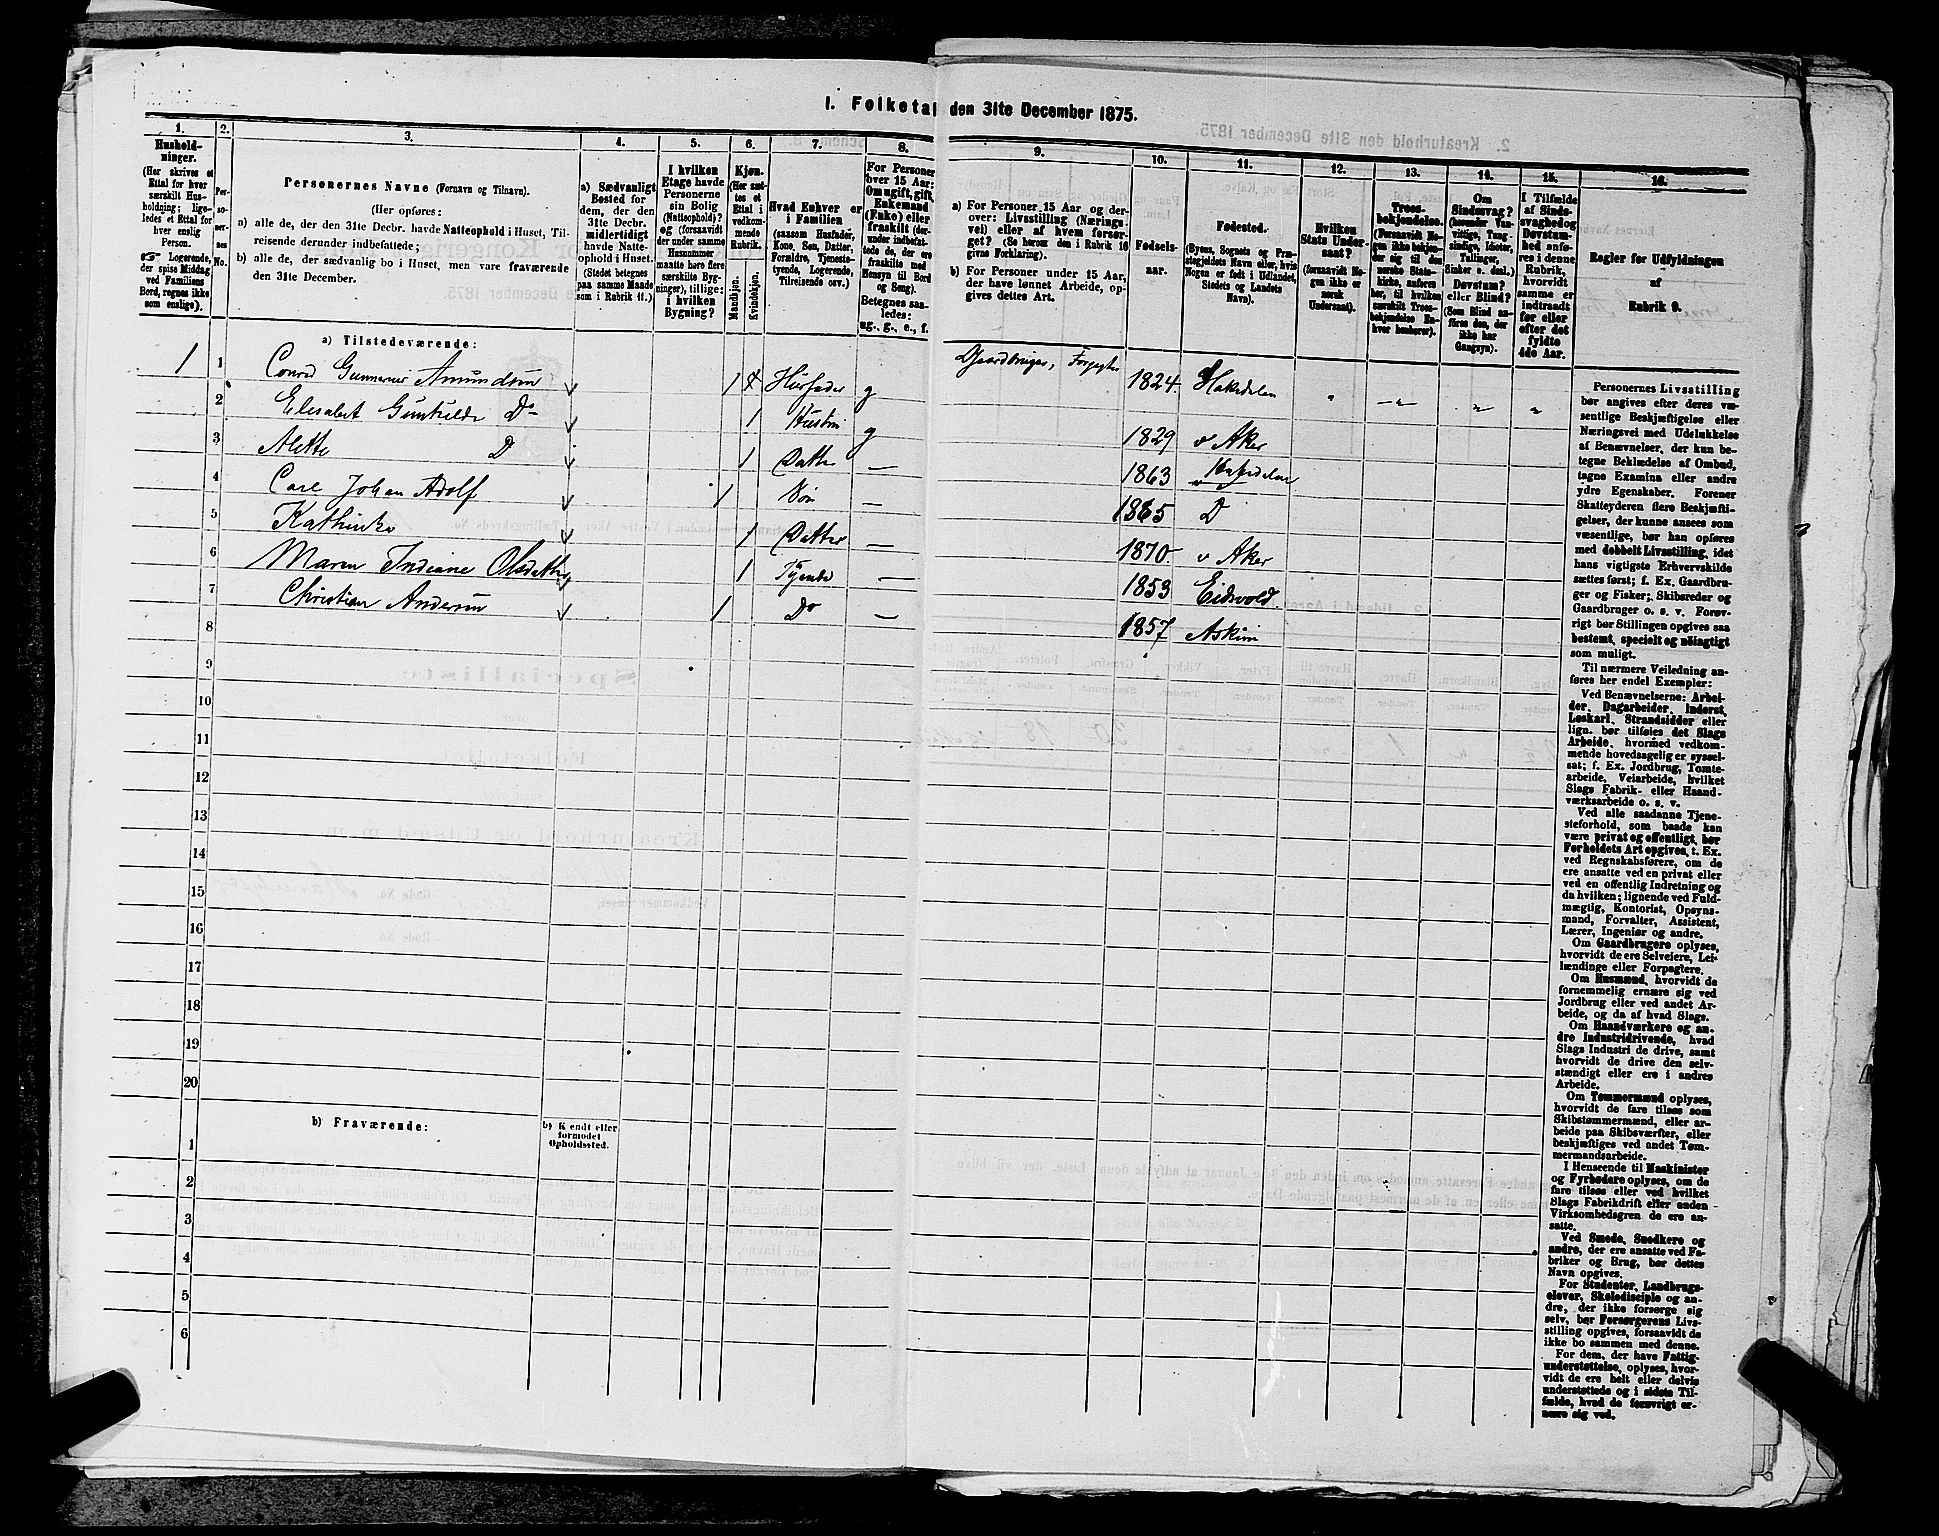 I. Folketal den 31te December 1875.
1.
Hushold-
ninger.
(Her skrives et
Ettal for hver
særskilt Hus-
holdning; lige-
ledes et Ettal for
hver enslig
Person.
☞ Logerende,
der spise Middag
ved Familiens
Bord, regnes ikke
som enslige).
2.
Per-
so-
ner-
nes
No.
3.
Personernes Navne (Fornavn og Tilnavn).
(Her opføres:
a) alle de, der den 31te Decbr. havde Natteophold i Huset, Til-
reisende derunder indbefattede;
b) alle de, der sædvanlig bo i Huset, men vare fraværende
den 31te December.
4.
a) Sædvanligt
Bosted for
dem, der den
31te Decbr.
midlertidigt
havde Natte-
ophold i Huset.
(Stedet betegnes
paa samme Maade
som i Rubrik 11.)
5.
I hvilken
Etage havde
Personerne
sin Bolig
(Natteophold)?
og (forsaavidt
der under samme
Husnummer
maatte høre flere
særskilte Byg-
ninger), tillige:
i hvilken
Bygning?
6.
Kjøn.
(Her sæt-
tes et
Ettal i
vedkom-
mende
Rubrik.
Mandkjøn.
Kvindekjøn.
7.
Hvad Enhver er
i Familien
(saasom Husfader,
Kone, Søn, Datter,
Forældre, Tjeneste-
tyende, Logerende,
Tilreisende osv.)
8.
For Personer
over 15 Aar:
Om ugift, gift,
Enkemand
(Enke) eller
fraskilt (der-
under indbefat-
tede de, der ere
fraskilte med
Hensyn til Bord
og Seng).
Betegnes saa-
ledes:
ug., g., e., f.
9.
a) For Personer 15 Aar og der-
over: Livsstilling (Nærings-
vei) eller af hvem forsør-
get? (Se herom den i Rubrik 16
givne Forklaring).
b) For Personer under 15 Aar,
der have lønnet Arbeide, op-
gives dettes Art.
10.
Fødsels-
aar.
11.
Fødested.
(Byens, Sognets og Præ-
stegjeldets Navn eller, hvis
Nogen er født i Udlandet,
Stedets og Landets
Navn).
12.
Hvilken
Stats Under-
saat?
(forsaavidt No-
gen ikke er
norsk
Undersaat).
13.
Troes-
bekjendelse.
(Forsaavidt No-
gen ikke bekjen-
der sig til den
norske Stats-
kirke, anføres
her, til hvilken
særskilt Troes-
bekjendelse En-
hver henhører).
14.
Om
Sindssvag?
(herunder Van-
vittige, Tung-
sindige, Idioter,
Tullinger,
Sinker o. desl.)
Døvstum?
eller Blind?
(Som Blind an-
føres den, der
ikke har
Gangsyn).
15.
I Tilfælde
af Sinds-
svaghed og
Døvstum-
hed anfø-
res i denne
Rubrik,
hvorvidt
samme er
indtraadt
før eller
efter det
fyldte
4de Aar.
16.
Regler for Udfyldningen
af
Rubrik 9.
a) Tilstedeværende:
1 1 Conrad Gunnerius Amundsen 1 Husfader g Gaardbruger, Forpagter 1824. Hakedalen
2 Elisabet Gunhilde Do 1 Hustru g 1829 v Aker
3 Alette D 1 Datter — 1863 Hakedalen
4 Carl Johan Adolf 1 Søn — 1865 D
5 Kathinka 1 Datter — 1870. v Aker
6 Maren Indiane Olsdatter 1 Tjende — 1853 Eidsvold
7 Christian Andersen 1 Do — 1857 Askim
8
9
10
11
12
13
14
15
16
17
18
19
20
b) Fraværende:
b) Kjendt eller
formodet
Opholdssted.
1
2
3
4
5
6
Personernes Livsstilling
bør angives efter deres væ-
sentlige Beskjæftigelse eller
Næringsvei med Udelukkelse
af Benævnelser, der kun be-
tegne Beklædelse af Ombud,
tagne Examina eller andre
ydre Egenskaber. Forener
Skatteyderen flere Beskjæfti-
gelser, der kunne ansees som
væsentlige, bør han opføres
med dobbelt Livsstilling, idet
hans vigtigste Erhvervskilde
sættes først; f. Ex. Gaardbru-
ger og Fisker; Skibsreder og
Gaardbruger o. s. v. Forøv-
rigt bør Stillingen opgives saa
bestemt, specielt og nøiagtigt
som muligt.
Til nærmere Veiledning an-
føres her endel Exempler:
Ved Benævnelserne: Arbei-
der, Dagarbeider, Inderst,
Løskarl, Strandsidder eller
lign. bør tilføies det Slags
Arbeide, hvormed vedkom-
mende hovedsagelig er syssel-
sat; f. Ex. Jordbrug, Tomte-
arbeide, Veiarbeide, hvilket
Slags Fabrik- eller Haand-
værksarbeide o. s. v.
Ved alle saadanne Tjene-
steforhold, som baade kan
være privat og offentligt, bør
Forholdets Art opgives, f. Ex.
ved Regnskabsførere, om de
ere ansatte ved en privat eller
ved en offentlig Indretning og
da hvilken; lignende ved Fuld-
mægtig, Kontorist, Opsyns-
mand, Forvalter, Assistent,
Lærer, Ingeniør og andre.
Om Gaardbrugere oplyses,
hvorvidt de ere Selveiere, Lei-
lændinge eller Forpagtere.
Om Husmænd, hvorvidt de
fornemmelig ernære sig ved
Jordbrug eller ved andet Ar-
beide, og da af hvad Slags.
Om Haandværkere og an-
dre Industridrivende, hvad
Slags Industri de drive, samt
hvorvidt de drive den selv-
stændigt eller ere i andres
Arbeide.
Om Tømmermænd oplyses,
hvorvidt de fare tilsøs som
Skibstømmermænd, eller ar-
beide paa Skibsværfter, eller
beskjæftiges ved andet Tøm-
mermandsarbeide.
I Henseende til Maskinister
og Fyrbødere oplyses, om de
fare tilsøs eller ved hvilket
Slags Fabrikdrift eller anden
Virksomhedsgren de ere an-
satte.
Ved Smede, Snedkere og
andre, der ere ansatte ved Fa-
briker og Brug, bør dettes
Navn opgives.
For Studenter, Landbrugs-
elever, Skoledisciple og an-
dre, der ikke forsørge sig
selv, bør Forsørgerens Livs-
stilling opgives, forsaavidt de
ikke bo sammen med denne.
For dem, der have Fattig-
understøttelse, oplyses, hvor-
vidt de ere helt eller delvis
understøttede og i sidste Til-
fælde, hvad de forøvrigt er-
nære sig ved.